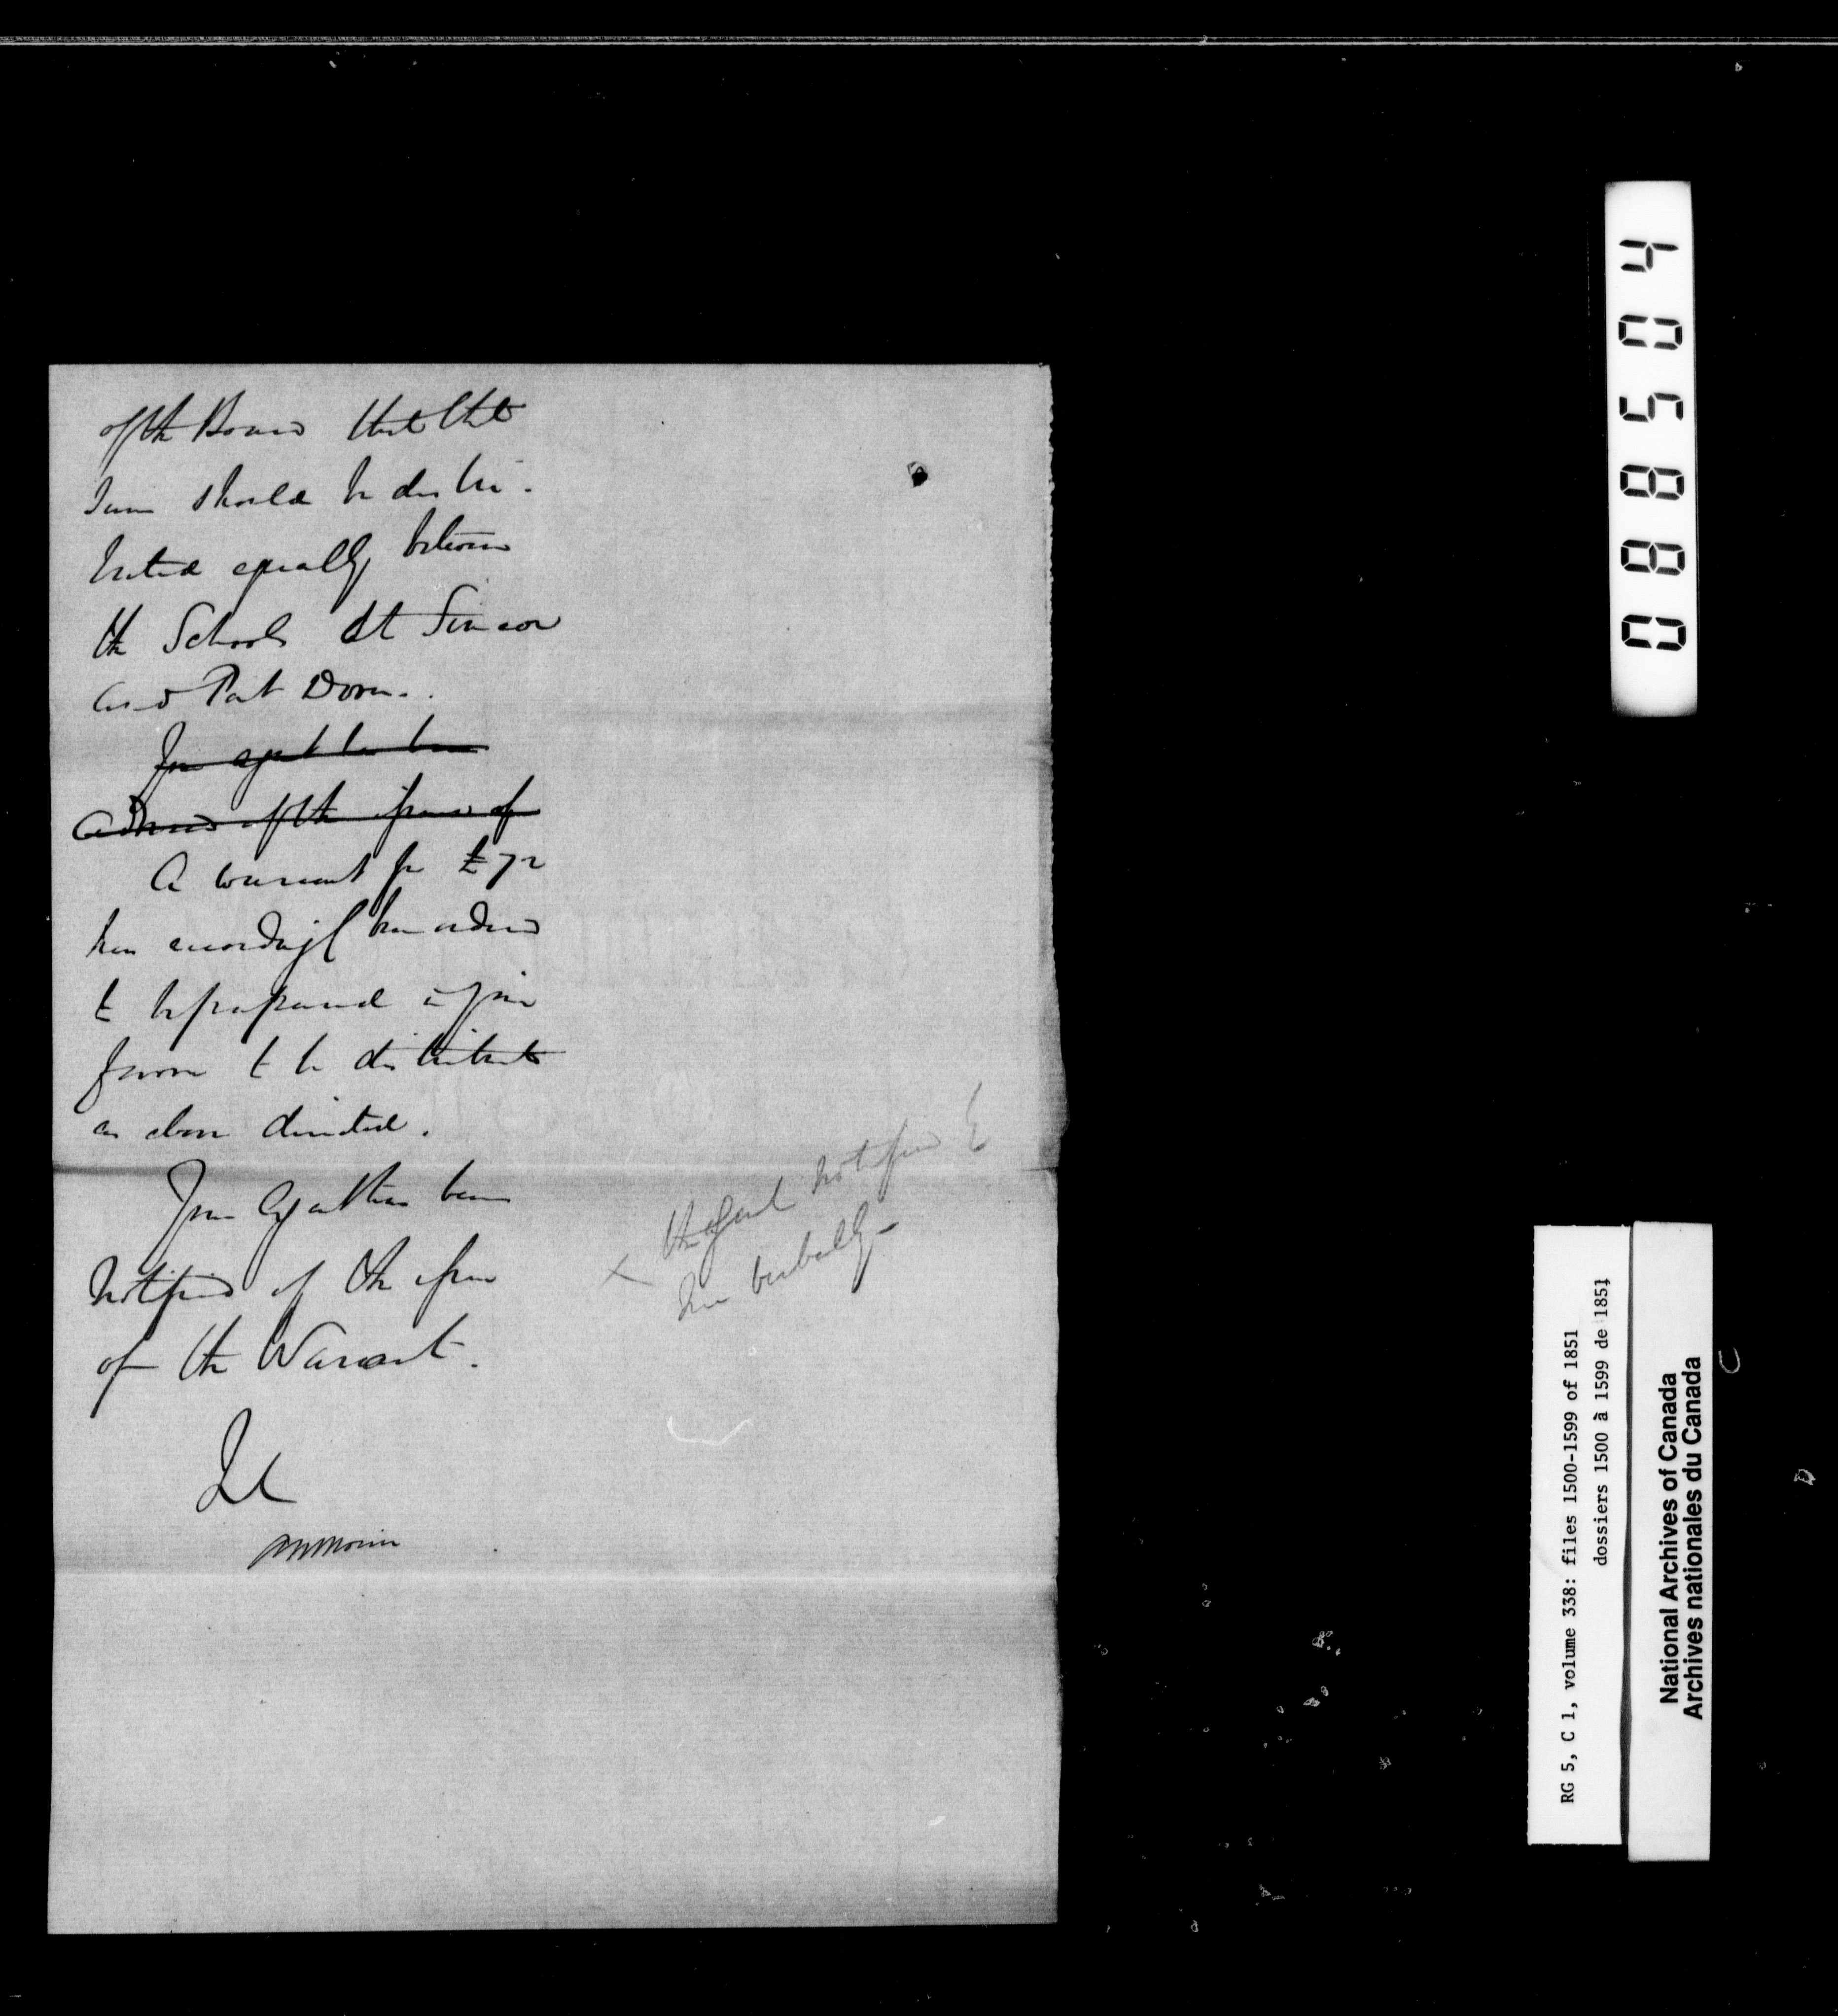 of the Board that that
sum should be distri-
buted equally between
the Schools at Simcoe
and Port Dover.
Your agent has been
advised of the issue of
A warrant for £72
has accordingly been ordered
to be prepared in your
favor to be distributed
as above directed.
Your Agent has been
notified of the issue
of the Warrant.
× the Agent notified
him verbally-
AN Morin
088504
RG 5, C 1, volume 338: files 1500-1599 of 1851
dossiers 1500 à 1599 de 1851
National Archives of Canada
Archives nationales du Canada